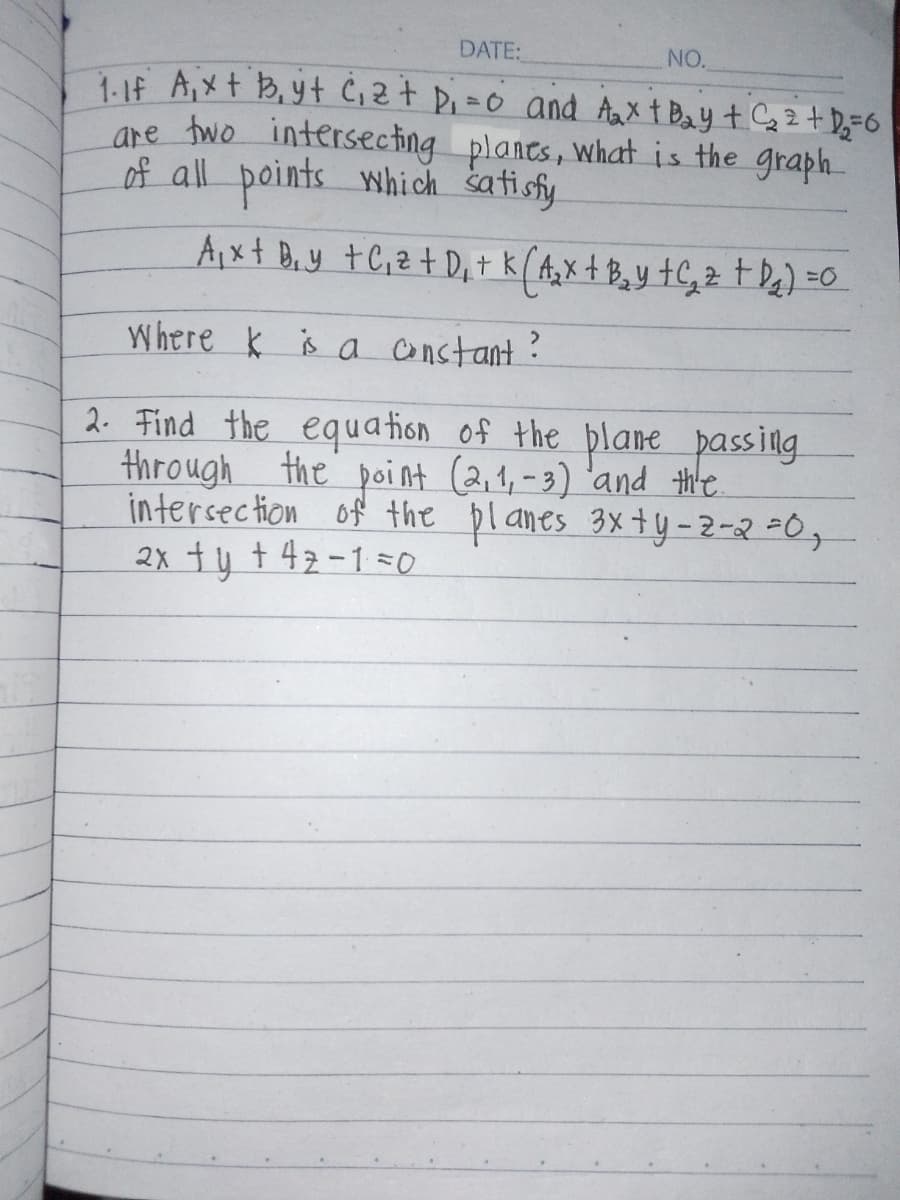 DATE: NO.
1. If A₁x + B₁y + C₁z + D₁ = 0 and A₂x + B₂y + C₂z + D₂=0
are two intersecting planes, what is the graph
of all points which satisfy
A₁x + B₁y + C₁z + D₁ + K(A₂x + B₂y + C₂z + D₂) = 0
Where k is a constant?
2. Find the equation of the plane passing
through the point (2,1,-3) and the
intersection of the planes 3x + y - z - 2 = 0,
2x + y + 4z - 1 = 0